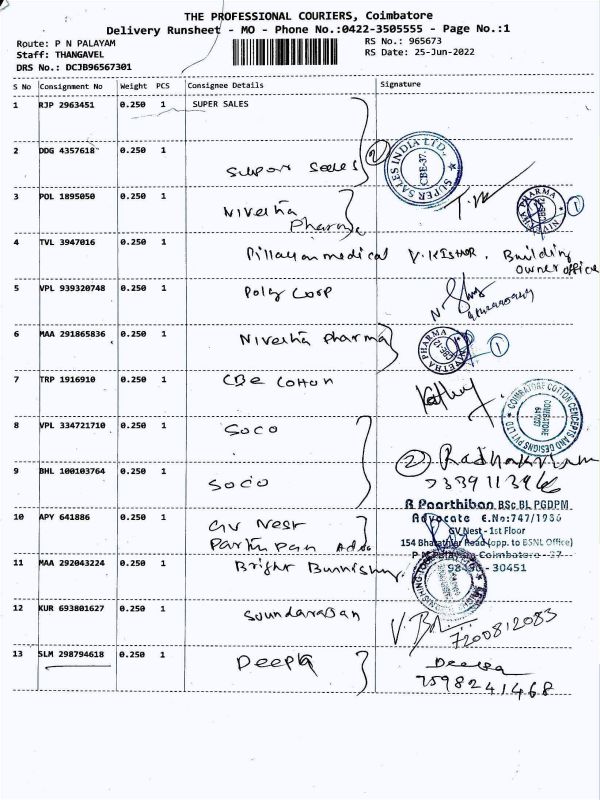 THE PROFESSIONAL COURIERS, Coimbatore
Delivery Runsheet - MO - Phone No.:0422-3505555 - Page No.:1
Route: P N PALAYAM
RS No.: 965673
Staff: THANGAVEL
RS Date: 25-Jun-2022
DRS No.: DCJB96567301
S No Consignment No Weight PCS Consignee Details Signature
1 RJP 2963451 0.250 1 SUPER SALES
2 DDG 4357618 0.250 1 Super Sales 2
SUPER SALES INDIA LTD. CBE-37.
3 POL 1895050 0.250 1 Nivetha
Pharma
NIVETHA PHARMA 1
4 TVL 3947016 0.250 1 Pillayan medical V. KISHOR. Building
Owner office
5 VPL 939320748 0.250 1 Poly Corp
6 MAA 291865836 0.250 1 Nivetha Pharma
NIVETHA PHARMA 1
7 TRP 1916910 0.250 1 CBE Cotton
COIMBATORE COTTON CONCEPTS AND DESIGNS PVT LTD
COIMBATORE
8 VPL 334721710 0.250 1 SOCO
2 Radhakrishnan
9 BHL 100103764 0.250 1 SOCO
R Paarthiban BSc.BL PGDPM
Advocate E.No:747/1986
10 APY 641886 0.250 1 GV Nest
GV Nest - 1st Floor
154 Bharathiar Road (opp. to BSNL Office)
P N Palayam Coimbatore - 37
30451
11 MAA 292043224 0.250 1 Bright Burnishing
12 KUR 693801627 0.250 1 Soundaraban
7200812083
13 SLM 298794618 0.250 1 Deepa
Deepa
7598241468